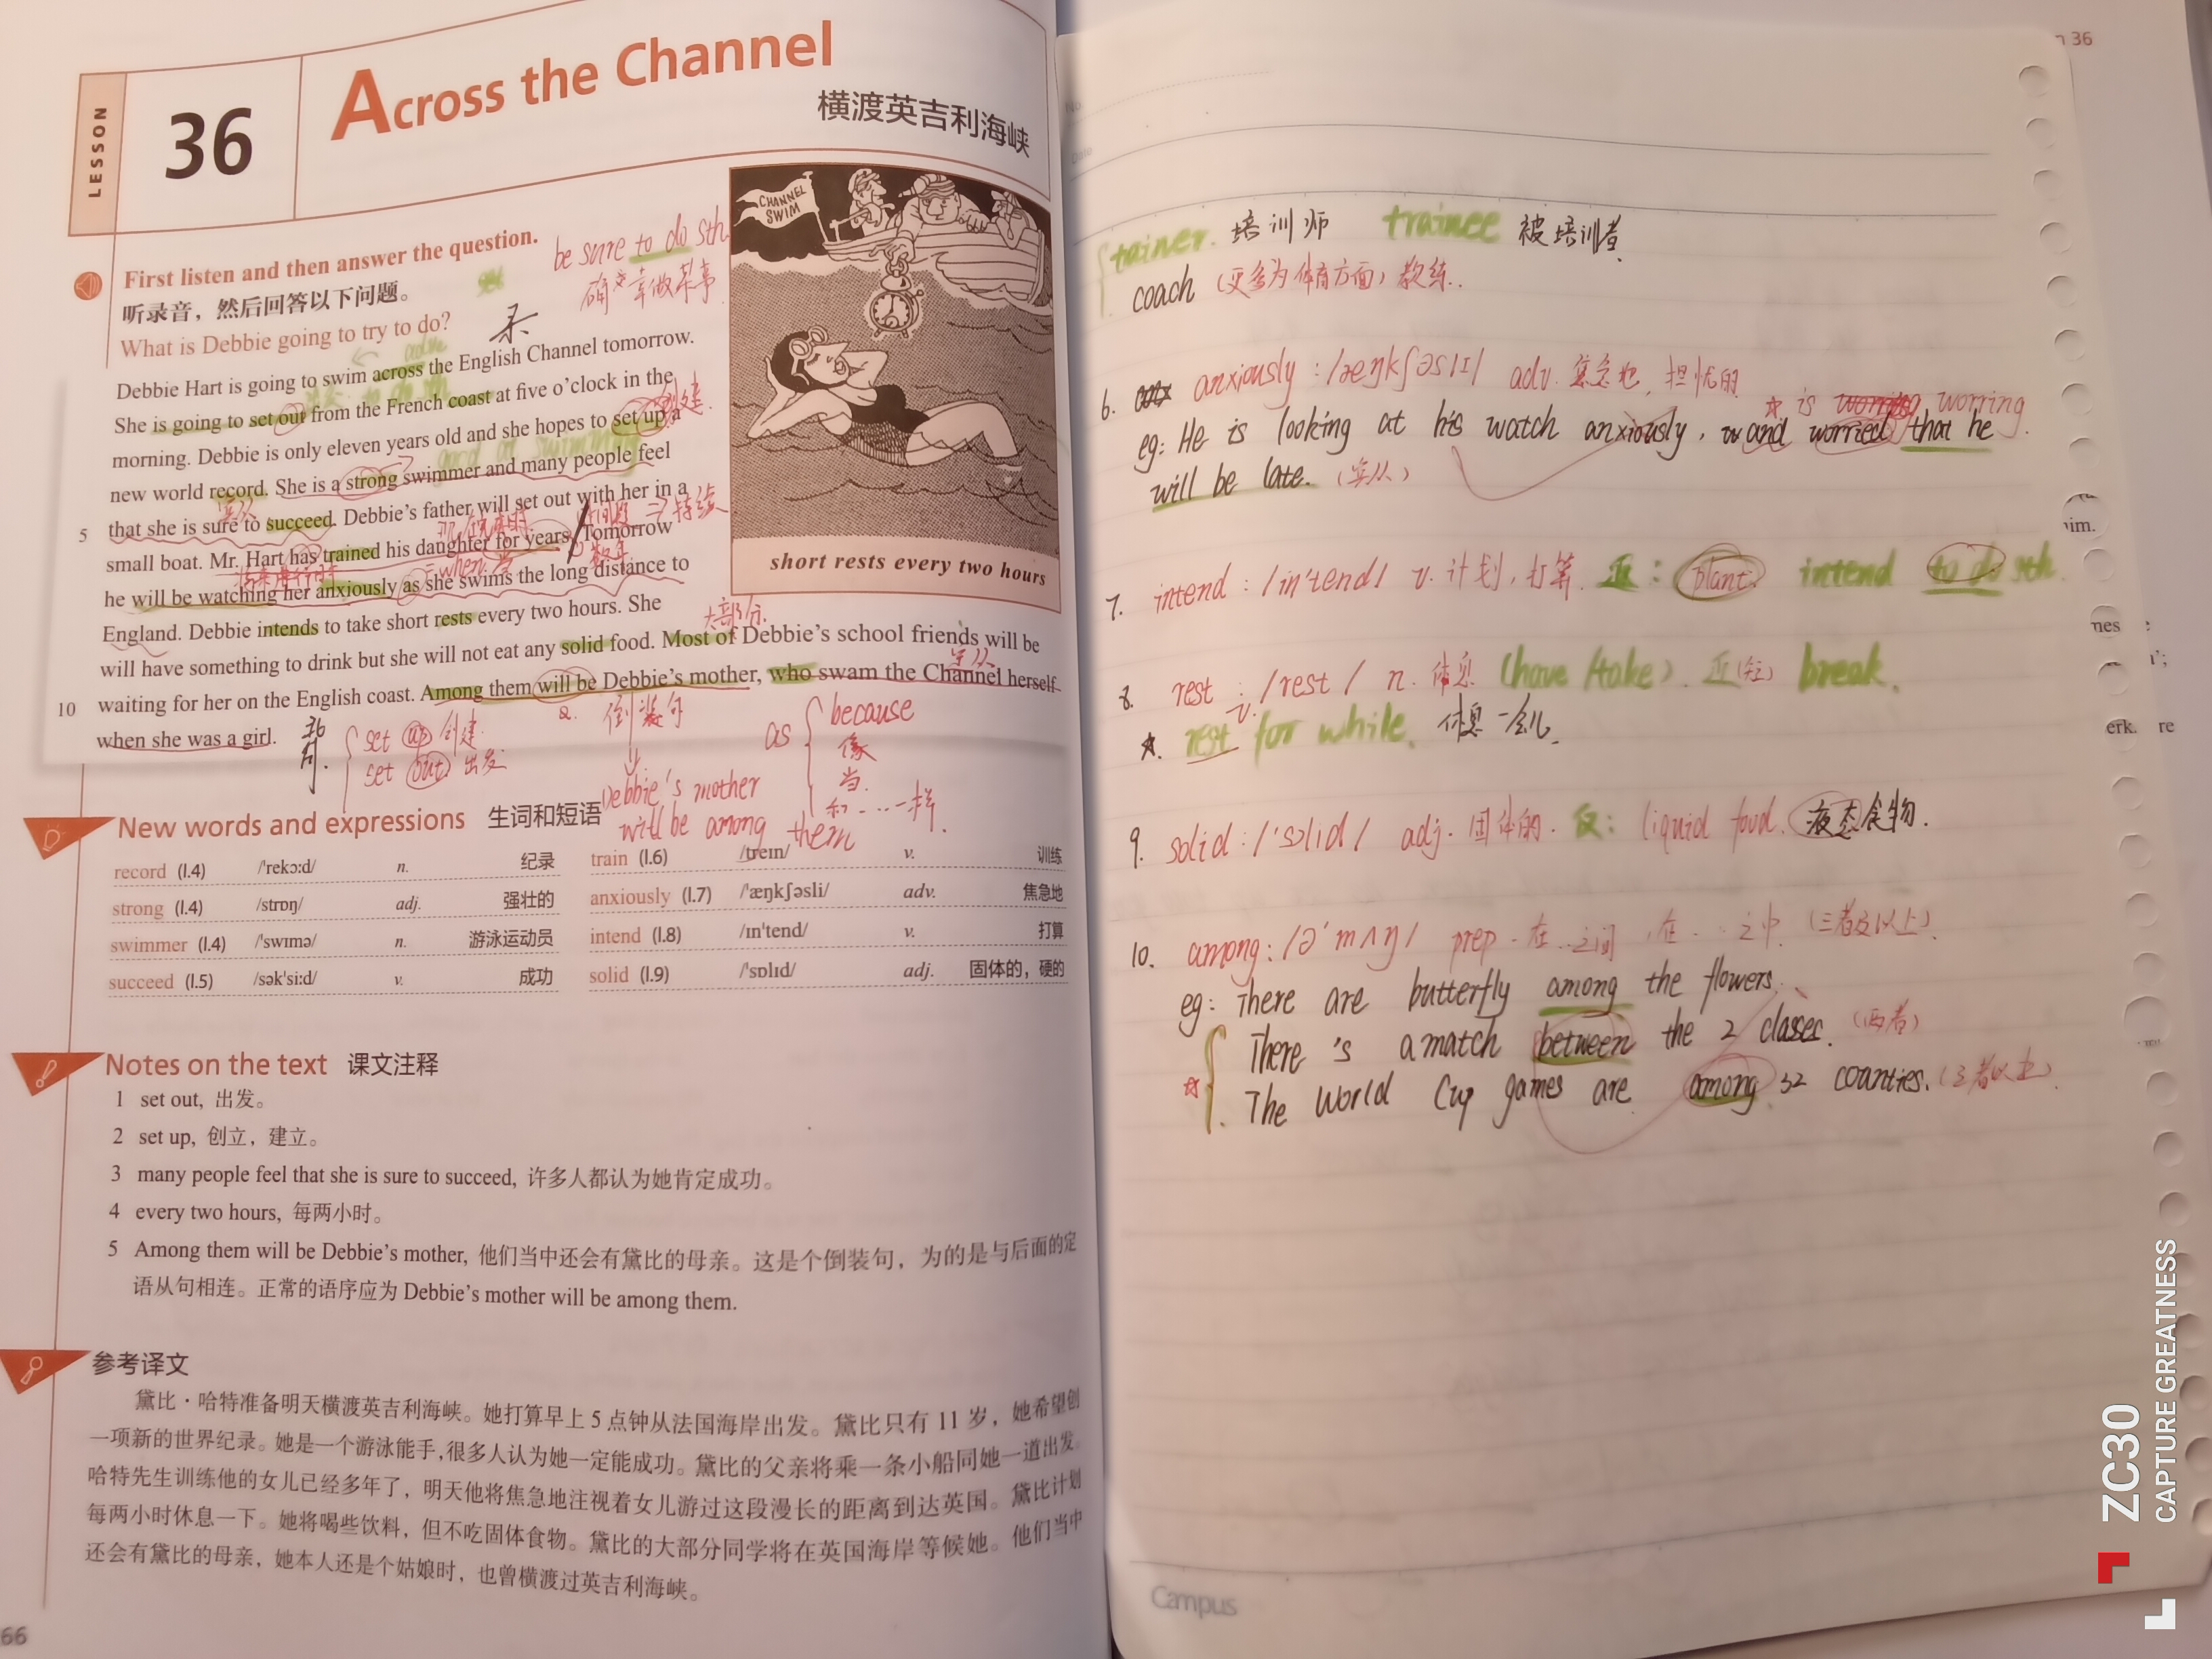 LESSON
36
Across the Channel
横渡英吉利海峡
First listen and then answer the question.
听录音，然后回答以下问题。
What is Debbie going to try to do?
be sure to do sth
确定要做某事
CHANNEL SWIM
short rests every two hours
Debbie Hart is going to swim across the English Channel tomorrow.
She is going to set out from the French coast at five o'clock in the
morning. Debbie is only eleven years old and she hopes to set up a
new world record. She is a strong swimmer and many people feel
5 that she is sure to succeed. Debbie's father will set out with her in a
small boat. Mr. Hart has trained his daughter for years. Tomorrow
he will be watching her anxiously as she swims the long distance to
England. Debbie intends to take short rests every two hours. She
will have something to drink but she will not eat any solid food. Most of Debbie's school friends will be
10 waiting for her on the English coast. Among them will be Debbie's mother, who swam the Channel herself
when she was a girl.
创建
good at swimming
宾从
=when 当
大部分
定从
set up 创建
set out 出发
倒装句
Debbie's mother
will be among them
as because
像
当
和...一样
New words and expressions 生词和短语
record (l.4) /ˈrekɔːd/ n. 纪录
strong (l.4) /strɒŋ/ adj. 强壮的
swimmer (l.4) /ˈswɪmə/ n. 游泳运动员
succeed (l.5) /səkˈsiːd/ v. 成功
train (l.6) /treɪn/ v. 训练
anxiously (l.7) /ˈæŋkʃəsli/ adv. 焦急地
intend (l.8) /ɪnˈtend/ v. 打算
solid (l.9) /ˈsɒlɪd/ adj. 固体的，硬的
Notes on the text 课文注释
1 set out, 出发。
2 set up, 创立，建立。
3 many people feel that she is sure to succeed, 许多人都认为她肯定成功。
4 every two hours, 每两小时。
5 Among them will be Debbie's mother, 他们当中还会有黛比的母亲。这是个倒装句，为的是与后面的定
语从句相连。正常的语序应为 Debbie's mother will be among them.
参考译文
黛比·哈特准备明天横渡英吉利海峡。她打算早上 5 点钟从法国海岸出发。黛比只有 11 岁，她希望创
一项新的世界纪录。她是一个游泳能手，很多人认为她一定能成功。黛比的父亲将乘一条小船同她一道出发。
哈特先生训练他的女儿已经多年了，明天他将焦急地注视着女儿游过这段漫长的距离到达英国。黛比计划
每两小时休息一下。她将喝些饮料，但不吃固体食物。黛比的大部分同学将在英国海岸等候她。他们当中
还会有黛比的母亲，她本人还是个姑娘时，也曾横渡过英吉利海峡。
66
36
trainer. 培训师 trainee 被培训者
coach (更多为体育方面) 教练.
6. anxiously: /æŋkʃəslɪ/ adv. 焦急地, 担忧的
is worring
eg: He is looking at his watch anxiously, and worried that he
will be late. (宾从)
7. intend: /in'tend/ v. 计划, 打算. 近: plant. intend to do sth.
8. rest: /rest/ n. 休息 (have/take). 近(短) break.
v.
rest for while. 休息一会儿.
9. solid: /'sɔlid/ adj. 固体的. 反: liquid food. 液态食物.
10. among: /ə'mʌŋ/ prep. 在...之间, 在...之中 (三者及以上).
eg: There are butterfly among the flowers.
There's a match between the 2 classes. (两者)
The World Cup games are among 32 counties. (三者以上).
im.
nes
erk. re
Campus
ZC30
CAPTURE GREATNESS